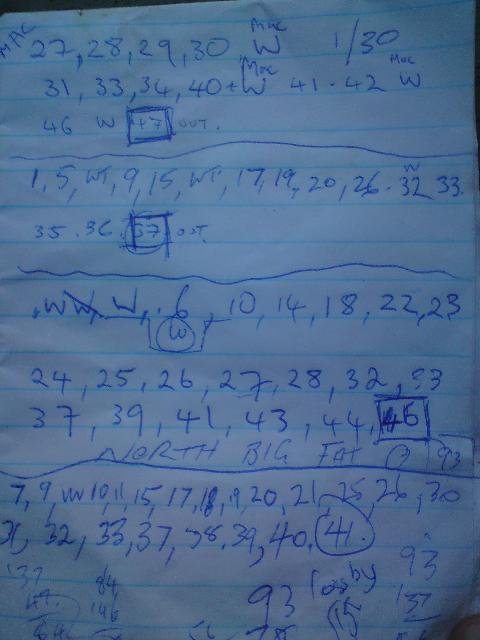 MAC
27, 28, 29, 30 W Mac 1/30
31, 33, 34, 40 + W Mac 41 - 42 W Mac
46 W 47 OUT.
1, 5, WT, 9, 15, WT, 17, 19, 20, 26. W 32 33.
35. 36. 37 OUT.
W W W, 6 W, 10, 14, 18, 22, 23
24, 25, 26, 27, 28, 32, 33
37, 39, 41, 43, 44, 45
NORTH BIG FAT O 93
7, 9, W 10, 11, 15, 17, 18, 19, 20, 21, 25, 26, 30
31, 32, 33, 37, 38, 39, 40, 41.
137 84 93
146 93 137